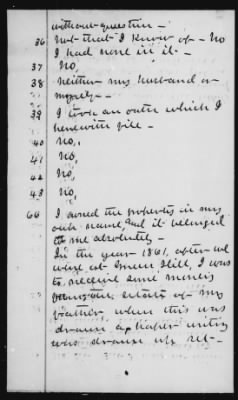 without question -
36 Not that I know of - No
I had none in it -
37 No,
38 Neither my husband or
myself -
39 I took an oath which I
herewith file -
40 No,
41 No,
42 No,
43 No,
66 I owned the property in my
own name, and it belonged
to me absolutely -
In the year 1861, after we
were at Green Hill, I was
to receive some monies
from the estate of my
father, when this was
drawn a paper writing
was drawn up, set-